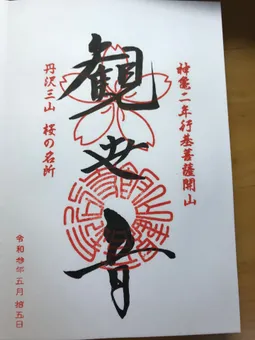 神亀二年行基菩薩開山
観世音
丹沢三山 桜の名所
令和弐年五月拾五日